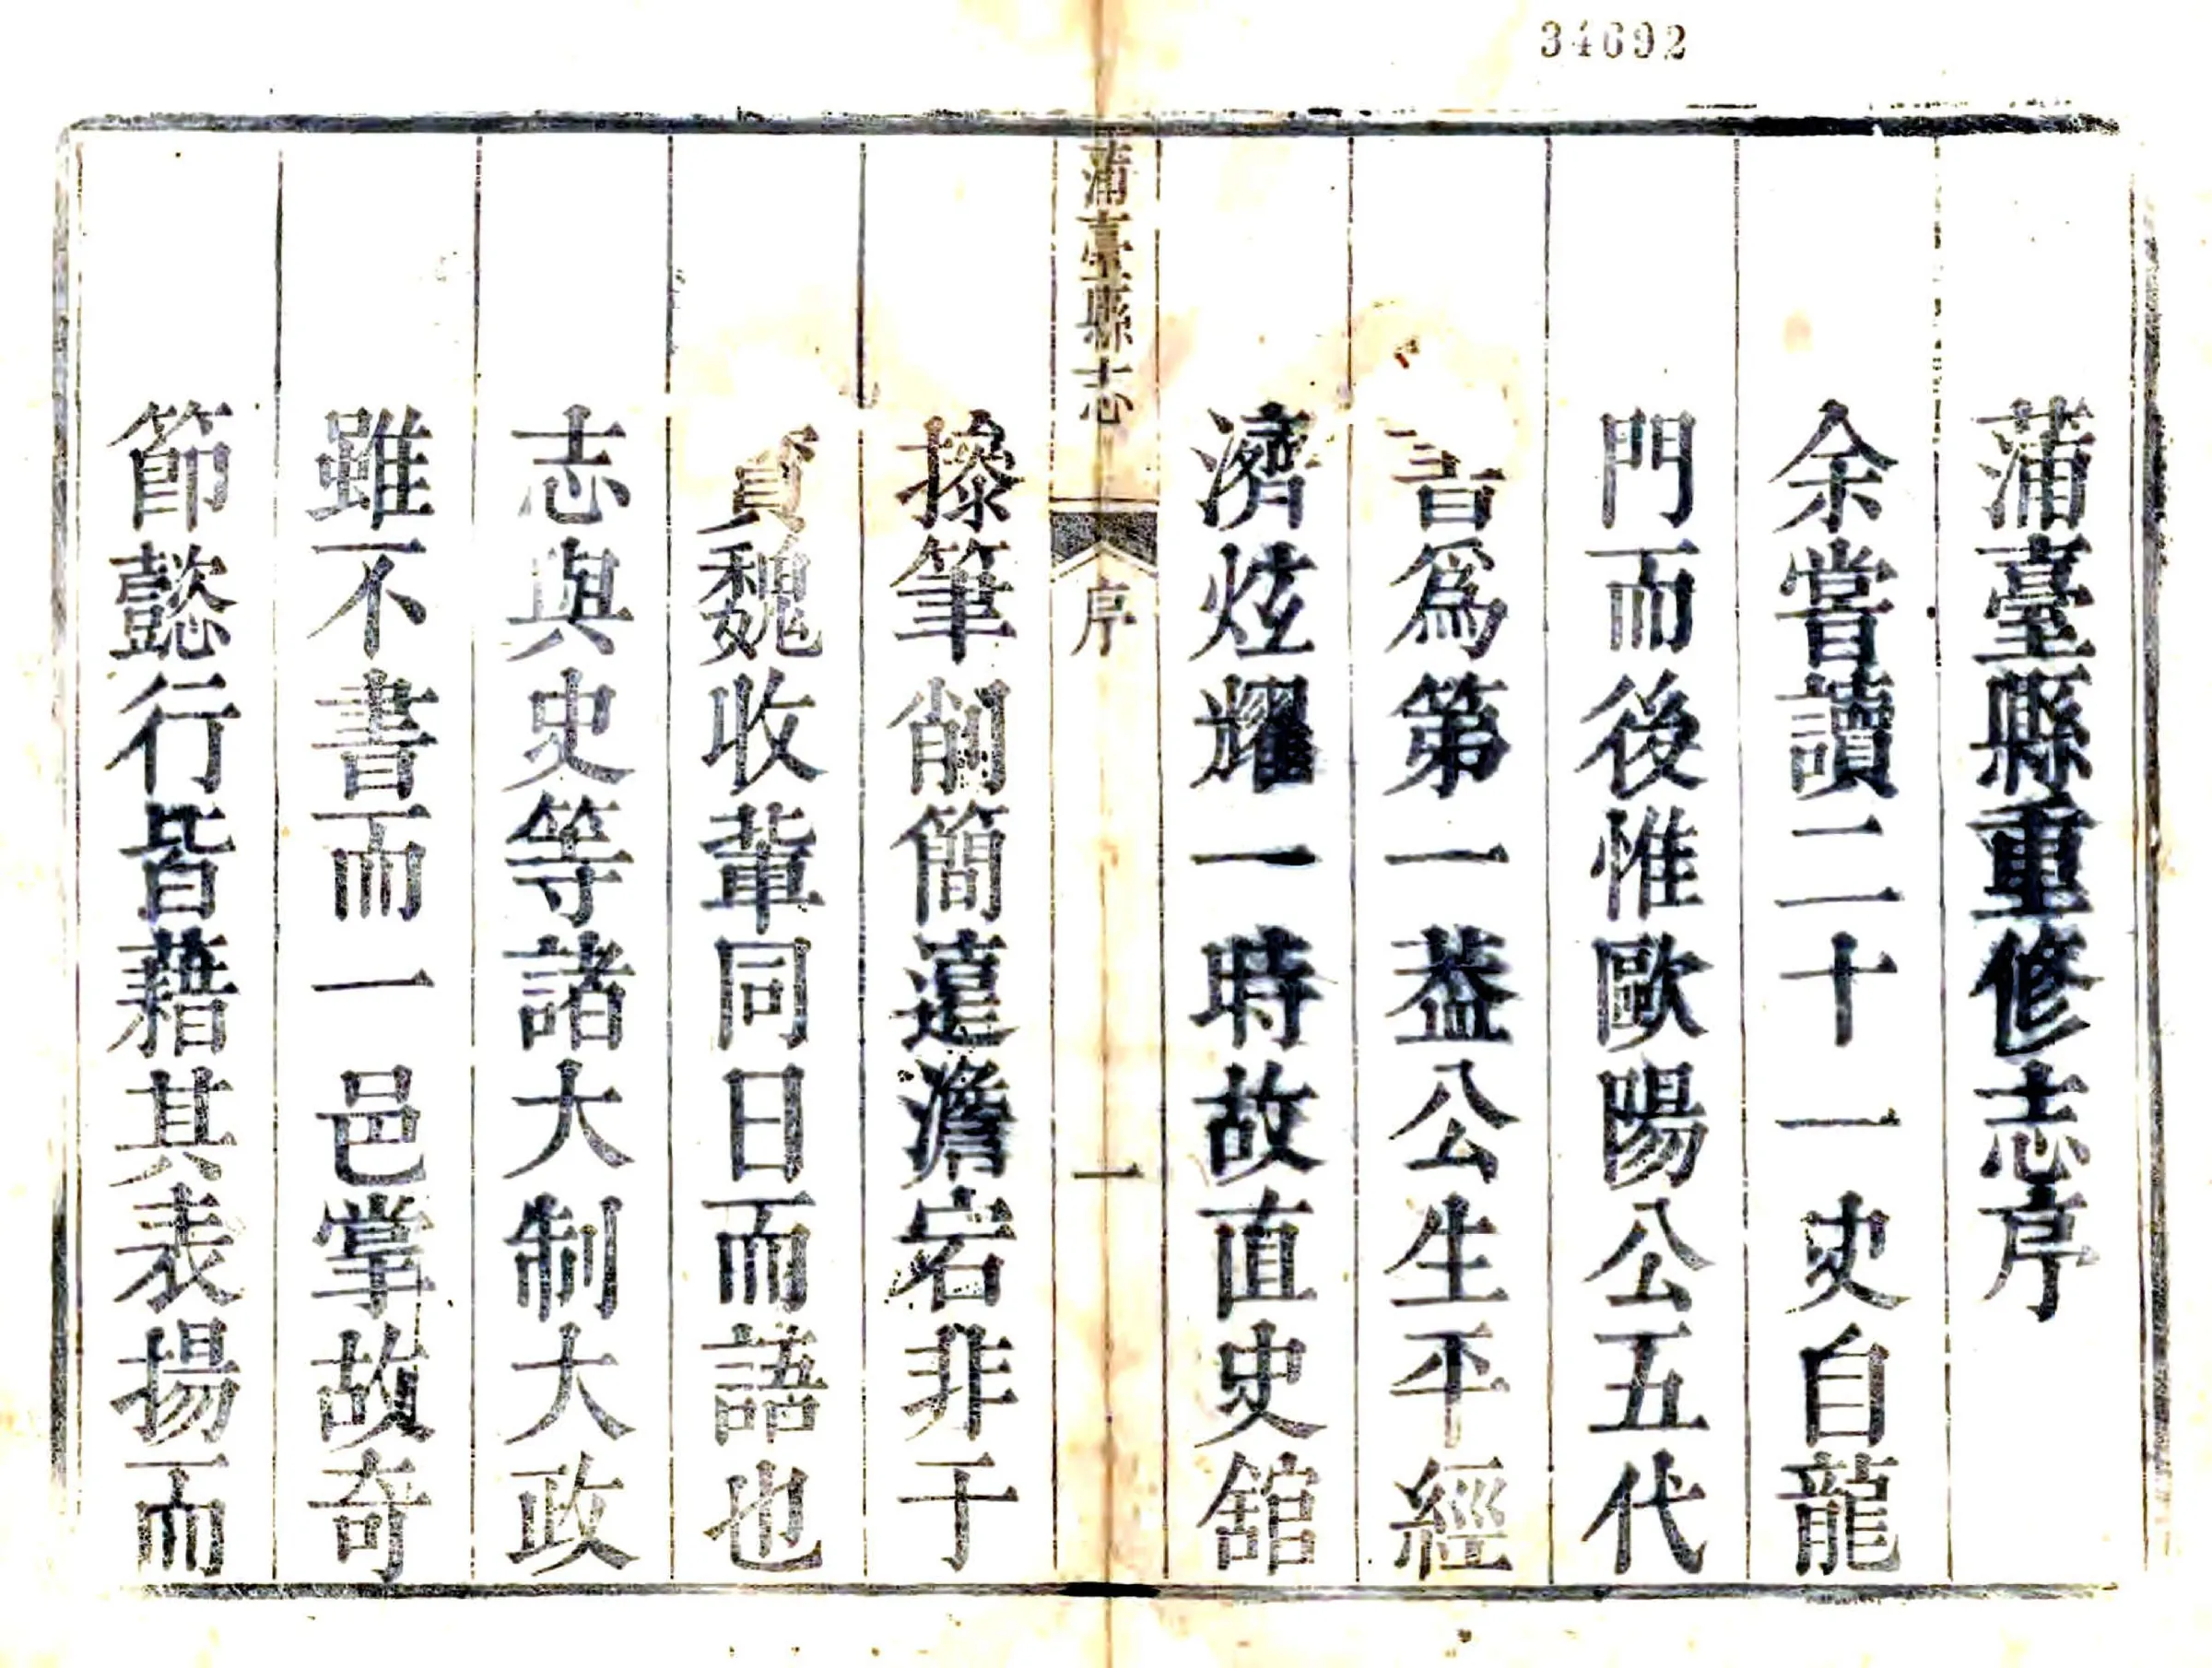 34692
蒲臺縣重修志序
余嘗讀二十一史自龍
門而後惟歐陽公五代
爲第一葢公生平經
濟炫耀一時故直史舘
蒲臺縣志
序
一
撡筆削簡遠澹宕非于
魏收輩同日而語也
志與史等諸大制大政
雖不書而一邑掌故奇
節懿行皆藉其表揚而